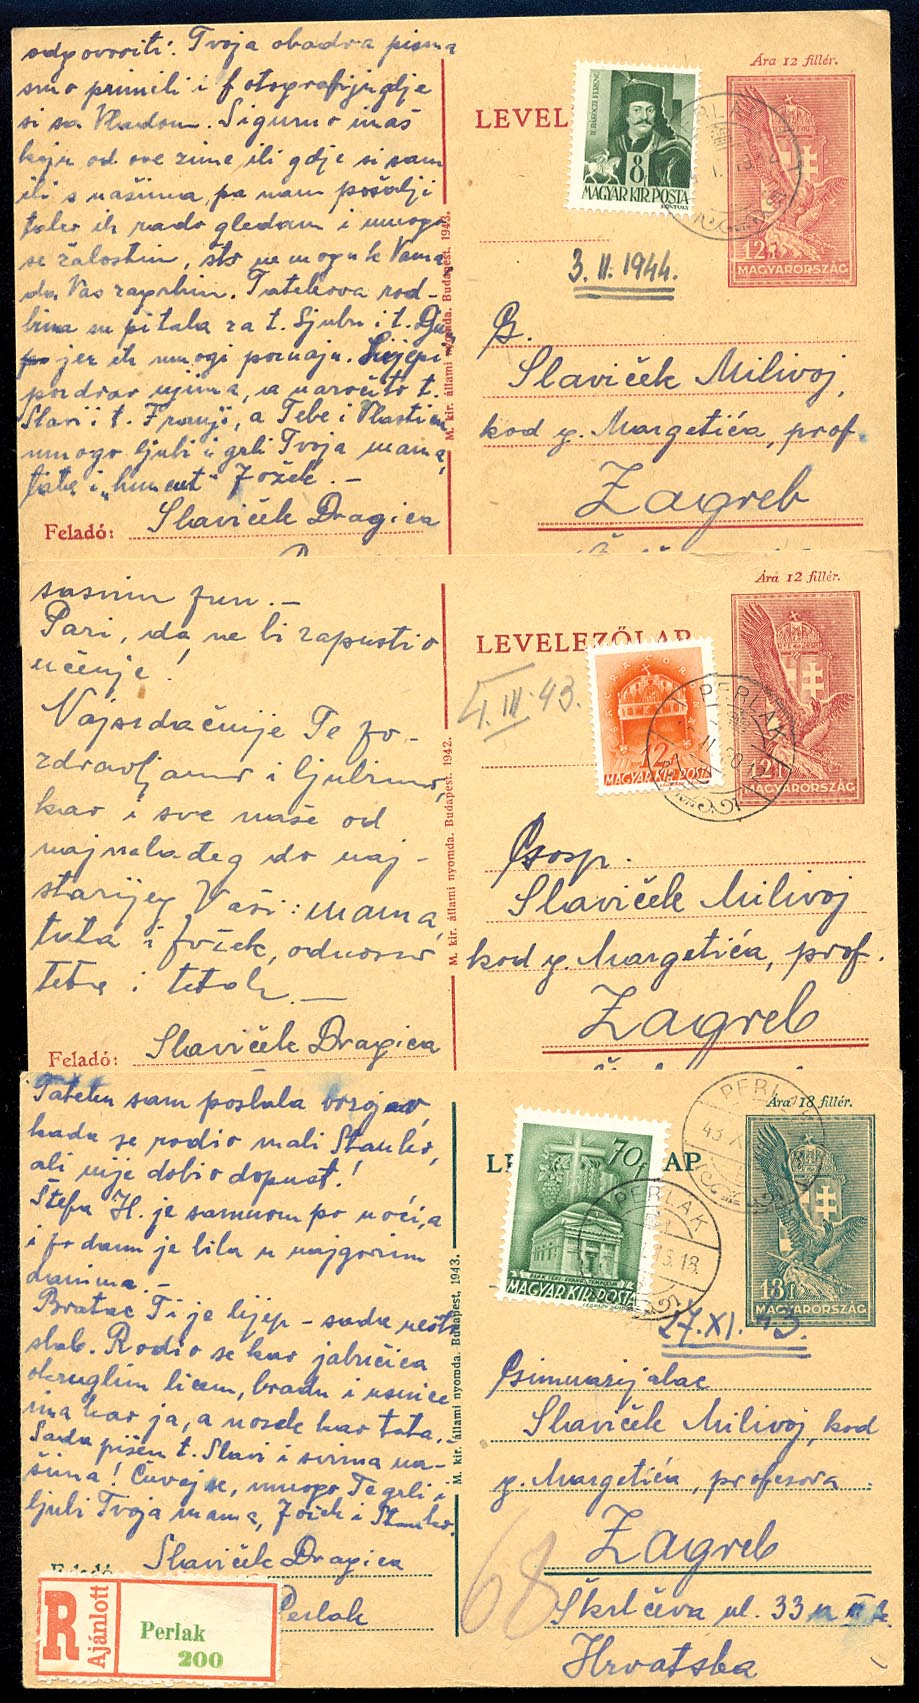 odgovoriti. Tvoja obadva pisma
smo primili i fotografiju gdje
si sa Vladom. Sigurno imaš
koju od ove zime ili gdje si sam
ili s našima, pa nam pošalji
tako ih rado gledam i mnogo
se žalostim, što ne mogu k Vama,
da Vas zagrlim. Tatekova rod-
bina su pitala za t. Ljubu i t.
jer ih mnogi poznaju. Lijepi
pozdrav njima, a naročito t.
Slavi i t. Franji, a Tebe i
mnogo ljubi i grli Tvoja mama,
tata i Jožek. —
Feladó: Slaviček Dragica
M. kir. állami nyomda. Budapest. 1943.
LEVEL
II. RÁKÓCZI FERENC
8
MAGYAR KIR. POSTA
Ára 12 fillér.
12f
MAGYARORSZÁG
3. II. 1944.
G.
Slaviček Milivoj,
kod g. Margetića, prof.
Zagreb
sasnim fun. —
Pazi, da ne bi zapustio
učenje!
Najsrdačnije Te po-
zdravljamo i ljubimo,
kao i sve naše od
najmlađeg do naj-
starijeg Vaši: mama,
tata i Jožek, odnosno
teta i tetak. —
Feladó: Slaviček Dragica
M. kir. állami nyomda. Budapest. 1942.
LEVELEZŐLAP
4. III. 43.
12
MAGYAR KIR. POSTA
PERLAK
Ára 12 fillér.
12f
MAGYARORSZÁG
Gosp.
Slaviček Milivoj
kod g. Margetića, prof.
Zagreb
Tateku sam poslala brzojav,
kada se rodio mali Stanko,
ali nije dobio dopust!
Štefa H. je samnom po noći, a
i po danu je bila u najgorim
danima. —
Bratac Ti je lijep – sada nešto
slab. Rodio se kao jabučica
okruglim licem, bradu i usnice
ima kao ja, a nosek kao tata. –
Sada pišem t. Slavi i svima na-
šima! Čuvaj se, mnogo Te grli i
ljubi Tvoja mama, Jožek i Stanko.
Slaviček Dragica
Perlak
R
Ajánlott
Perlak
200
M. kir. állami nyomda. Budapest, 1943.
AP
70f
MAGYAR KIR. POSTA
PERLAK
PERLAK
Ára 18 fillér.
18f
MAGYARORSZÁG
27. XI. 43.
Gimnazijalac
Slaviček Milivoj, kod
g. Margetića, profesora
Zagreb
68
Škrlčeva ul. 33
Hrvatska